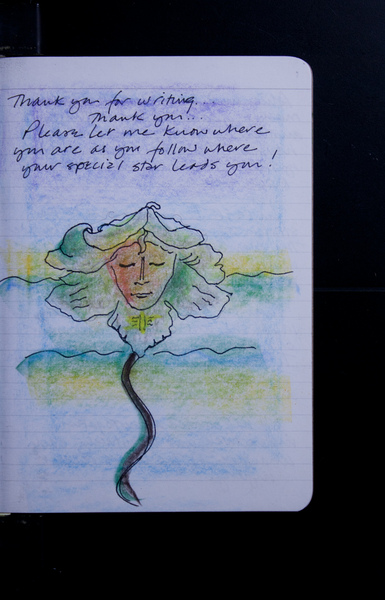 Thank you for writing...
Thank you...
Please let me know where
you are as you follow where
your special star leads you!